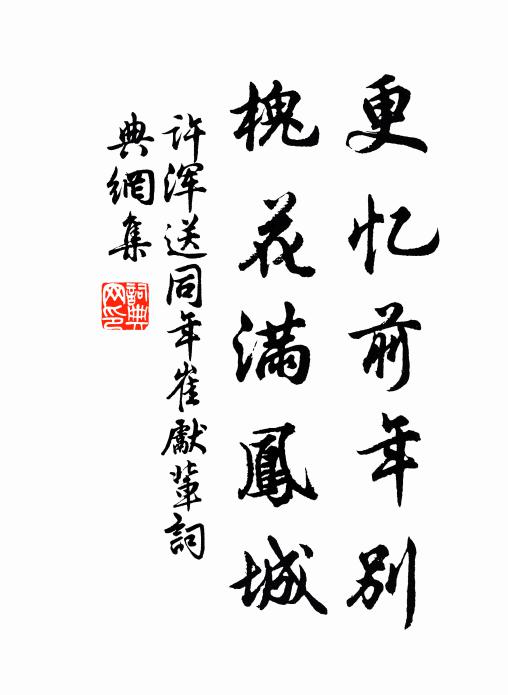 更忆前年别
槐花满鳳城
许渾送同年崔獻輩詞
典網集
詞典网印